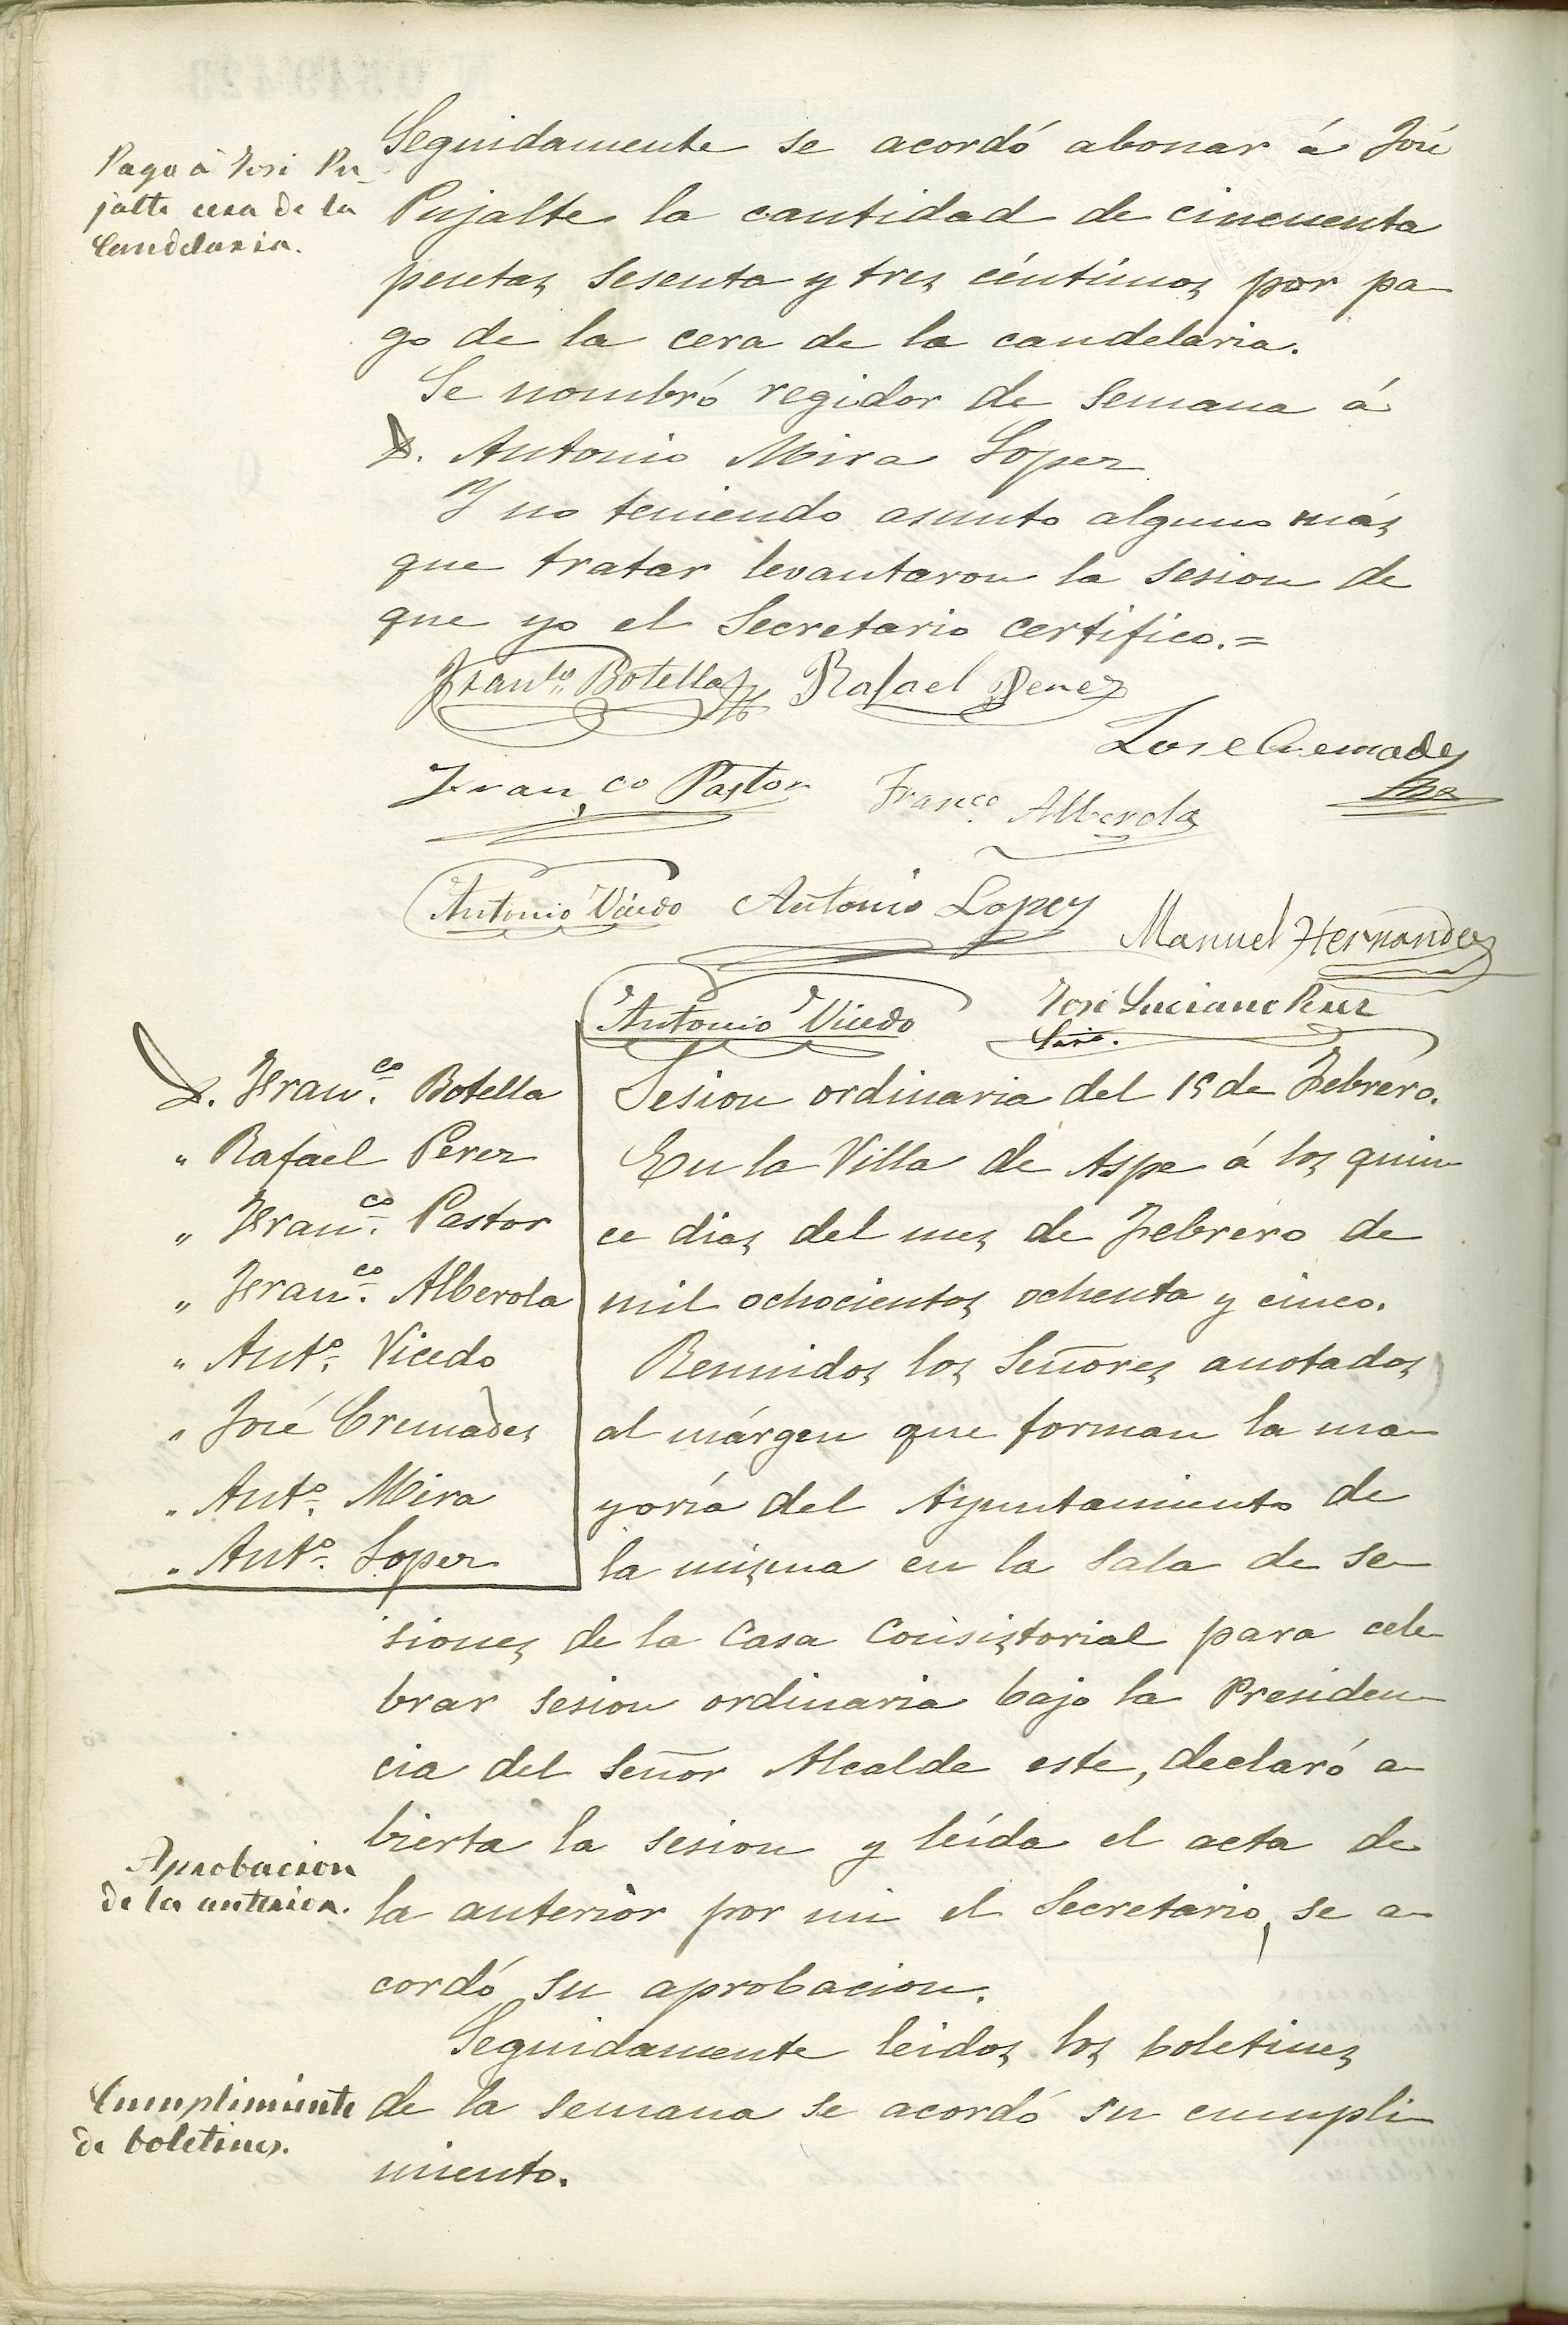 Pago á José Pu-
jalte cera de la
Candelaria.
Seguidamente se acordó abonar á José
Pujalte la cantidad de cincuenta
pesetas sesenta y tres céntimos por pa-
go de la cera de la candelaria.
Se nombró regidor de semana á
D. Antonio Mira Soper
Y no teniendo asunto alguno más
que tratar levantaron la sesion de
que yo el Secretario certifico.=
Franco. Botella Rafael Perez
Jose Cremades
Franco Pastor Franco. Alberola
Antonio Vicedo Antonio Lopez
Manuel Hernandez
Antonio Vicedo José Luciano Perez
Srio.
D. Franco. Botella
" Rafael Perez
" Franco. Pastor
" Franco. Alberola
" Anto. Vicedo
" José Cremades
" Anto. Mira
" Anto. Soper
Sesion ordinaria del 15 de Febrero.
En la Villa de Aspe á los quin-
ce dias del mes de Febrero de
mil ochocientos ochenta y cinco.
Reunidos los Señores anotados
al márgen que forman la ma-
yoría del Ayuntamiento de
la misma en la Sala de se-
siones de la Casa Consistorial para cele-
brar sesion ordinaria bajo la Presiden-
cia del Señor Alcalde este, declaró a-
bierta la sesion y leída el acta de
Aprobacion
de la anterior.
la anterior por mi el Secretario, se a-
cordó su aprobacion.
Seguidamente leidos los boletines
Cumplimiento
de boletines.
de la semana se acordó su cumpli-
miento.